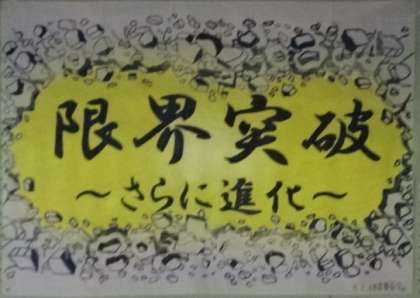 限界突破
～さらに進化～